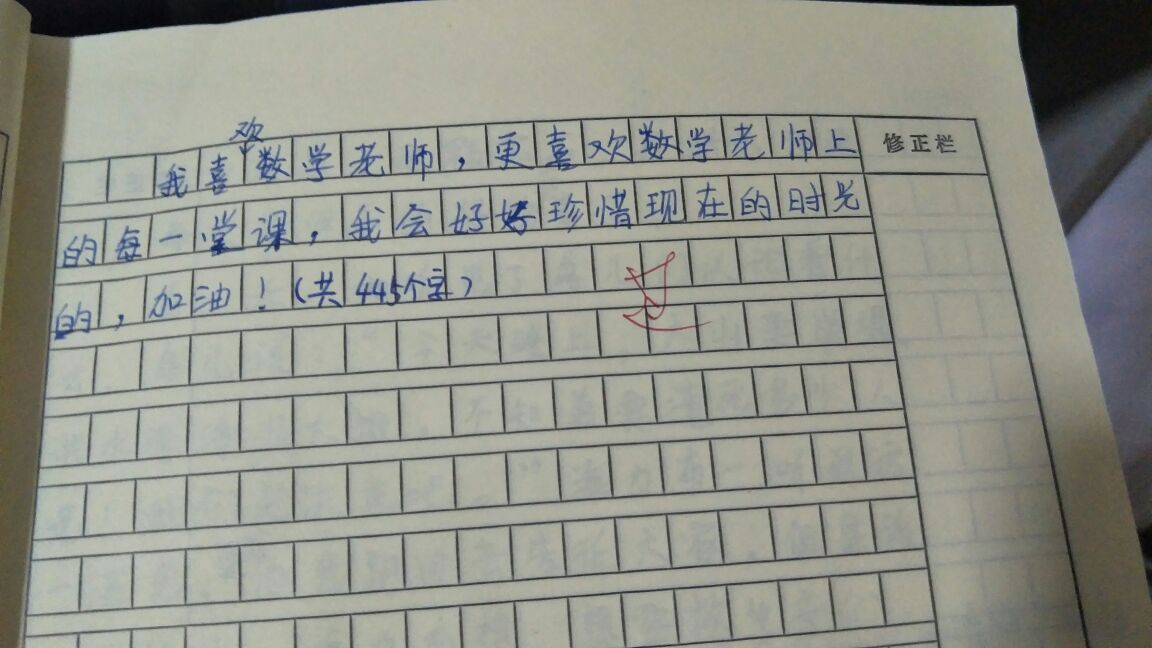 欢
我喜数学老师，更喜欢数学老师上
修正栏
的每一堂课，我会好好珍惜现在的时光
的，加油！（共445个字）